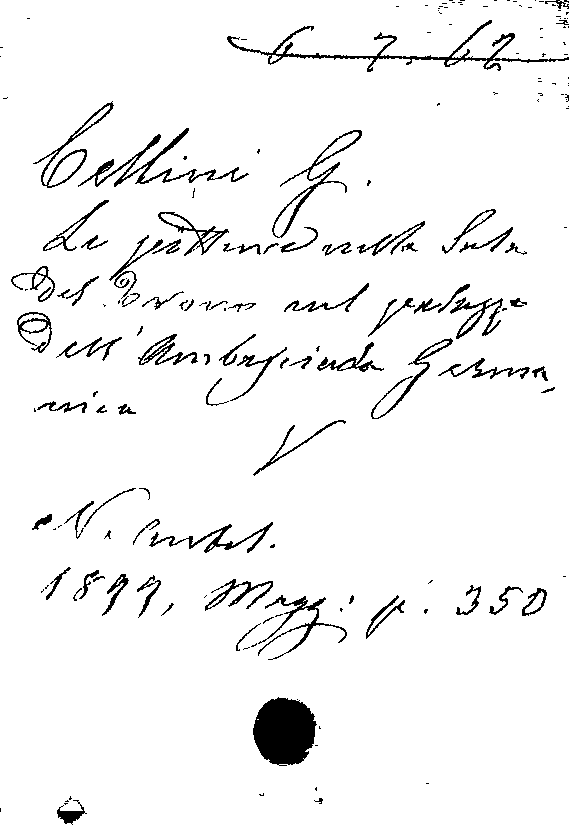 6. 7. 62
Cellini G.
Le pitture nella Sala
del Trono nel palazzo
dell'Ambasciada Germa,
nica
V
N. Antol.
1899, Magg: p. 350